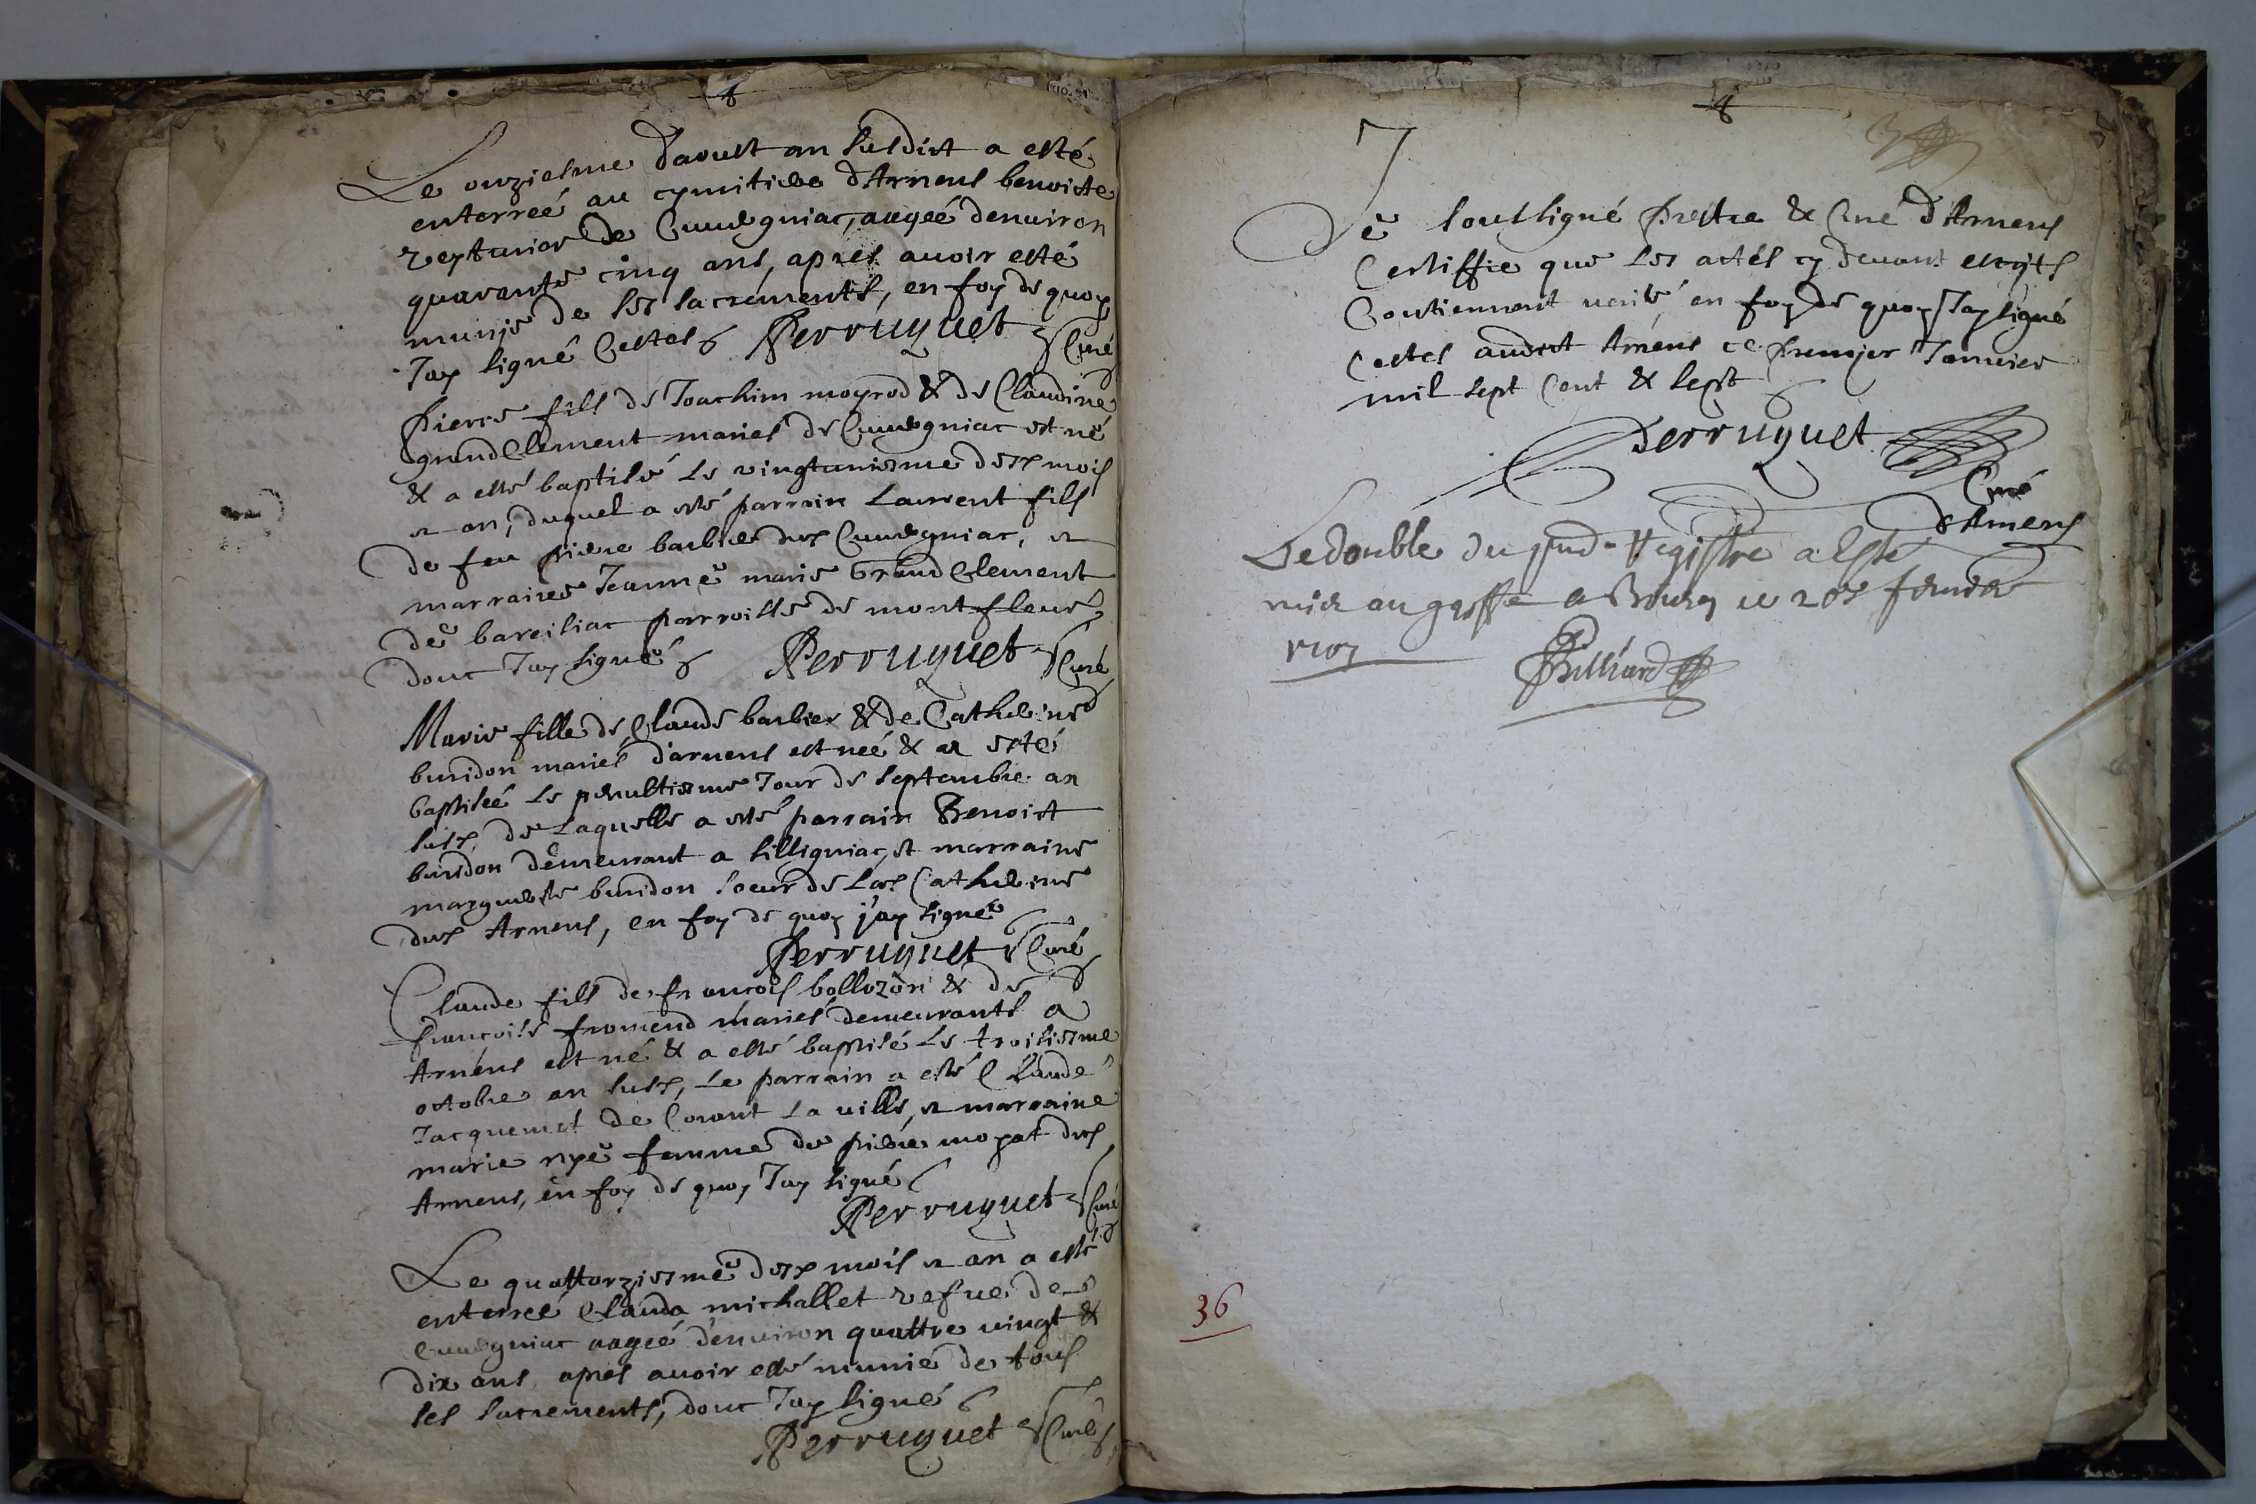 Le onziesme d'aoust an susdict a esté
enterreé au cymitiere d'Arnens benoicte
de Cuuegniac, aageé denuiron
quarante cinq ans, apres auoir esté
munie de ses sacrements, en foy de quoy
Jay signé Cestes Perruquet Curé
Pierre fils de Joachim moyrod & de Claudine
grandclement mariés de Cuuegniac est né
& a esté baptisé le vingtuniesme desd mois
et an, duquel a esté parrain Laurent fils
de feu piere barbier dud Cuuegniac, et
marraine Jeanne marie Grand Clement
de bareiliac parroisse de montfleur
donc Jay signé Perruquet Curé
Marie fille de Claude barbier & de Catherine
buridon mariés d'arnens est neé & a esté
baptiseé le penultiesme Jour de septembre an
susd, de Laquelle a esté parrain Benoict
buridon demeurant a silligniac, et marraine
marguerite buridon soeur de lad Catherine
dud Arnens, en foy de quoy j'ay signé
Perruquet Curé
Claude fils de francois bollozon & de
francoise fromend mariés demeurants a
Arnens est né & a esté baptisé le troisiesme
octobre an susd, Le parrain a esté Claude
Jacquemet de Corant La ville, et marraine
marie nye femme de piere moyat dud
Arnens, en foy de quoy Jay signé
Perruquet Curé
Le quattorziesme desd mois et an a esté
enterreé Clauda michallet vefue de
Cuuegniac aageé denuiron quattre vingt &
dix ans, apres auoir esté munie de tous
ses sacrements, donc Jay signé
Perruquet Curé
Je soussigné prestre & Curé d'Arnens
Certiffie que les actes cy deuant escrits
Contiennent verité, en foy de quoy Jay signé
Cestes audict Arnens ce premier Januier
mil sept Cent & sept
Perruquet
Curé
d'Arnens
Le double du pnd Registre a Esté
mis au greffe a Bourg ce 20e feurier
1707
Billiard
36